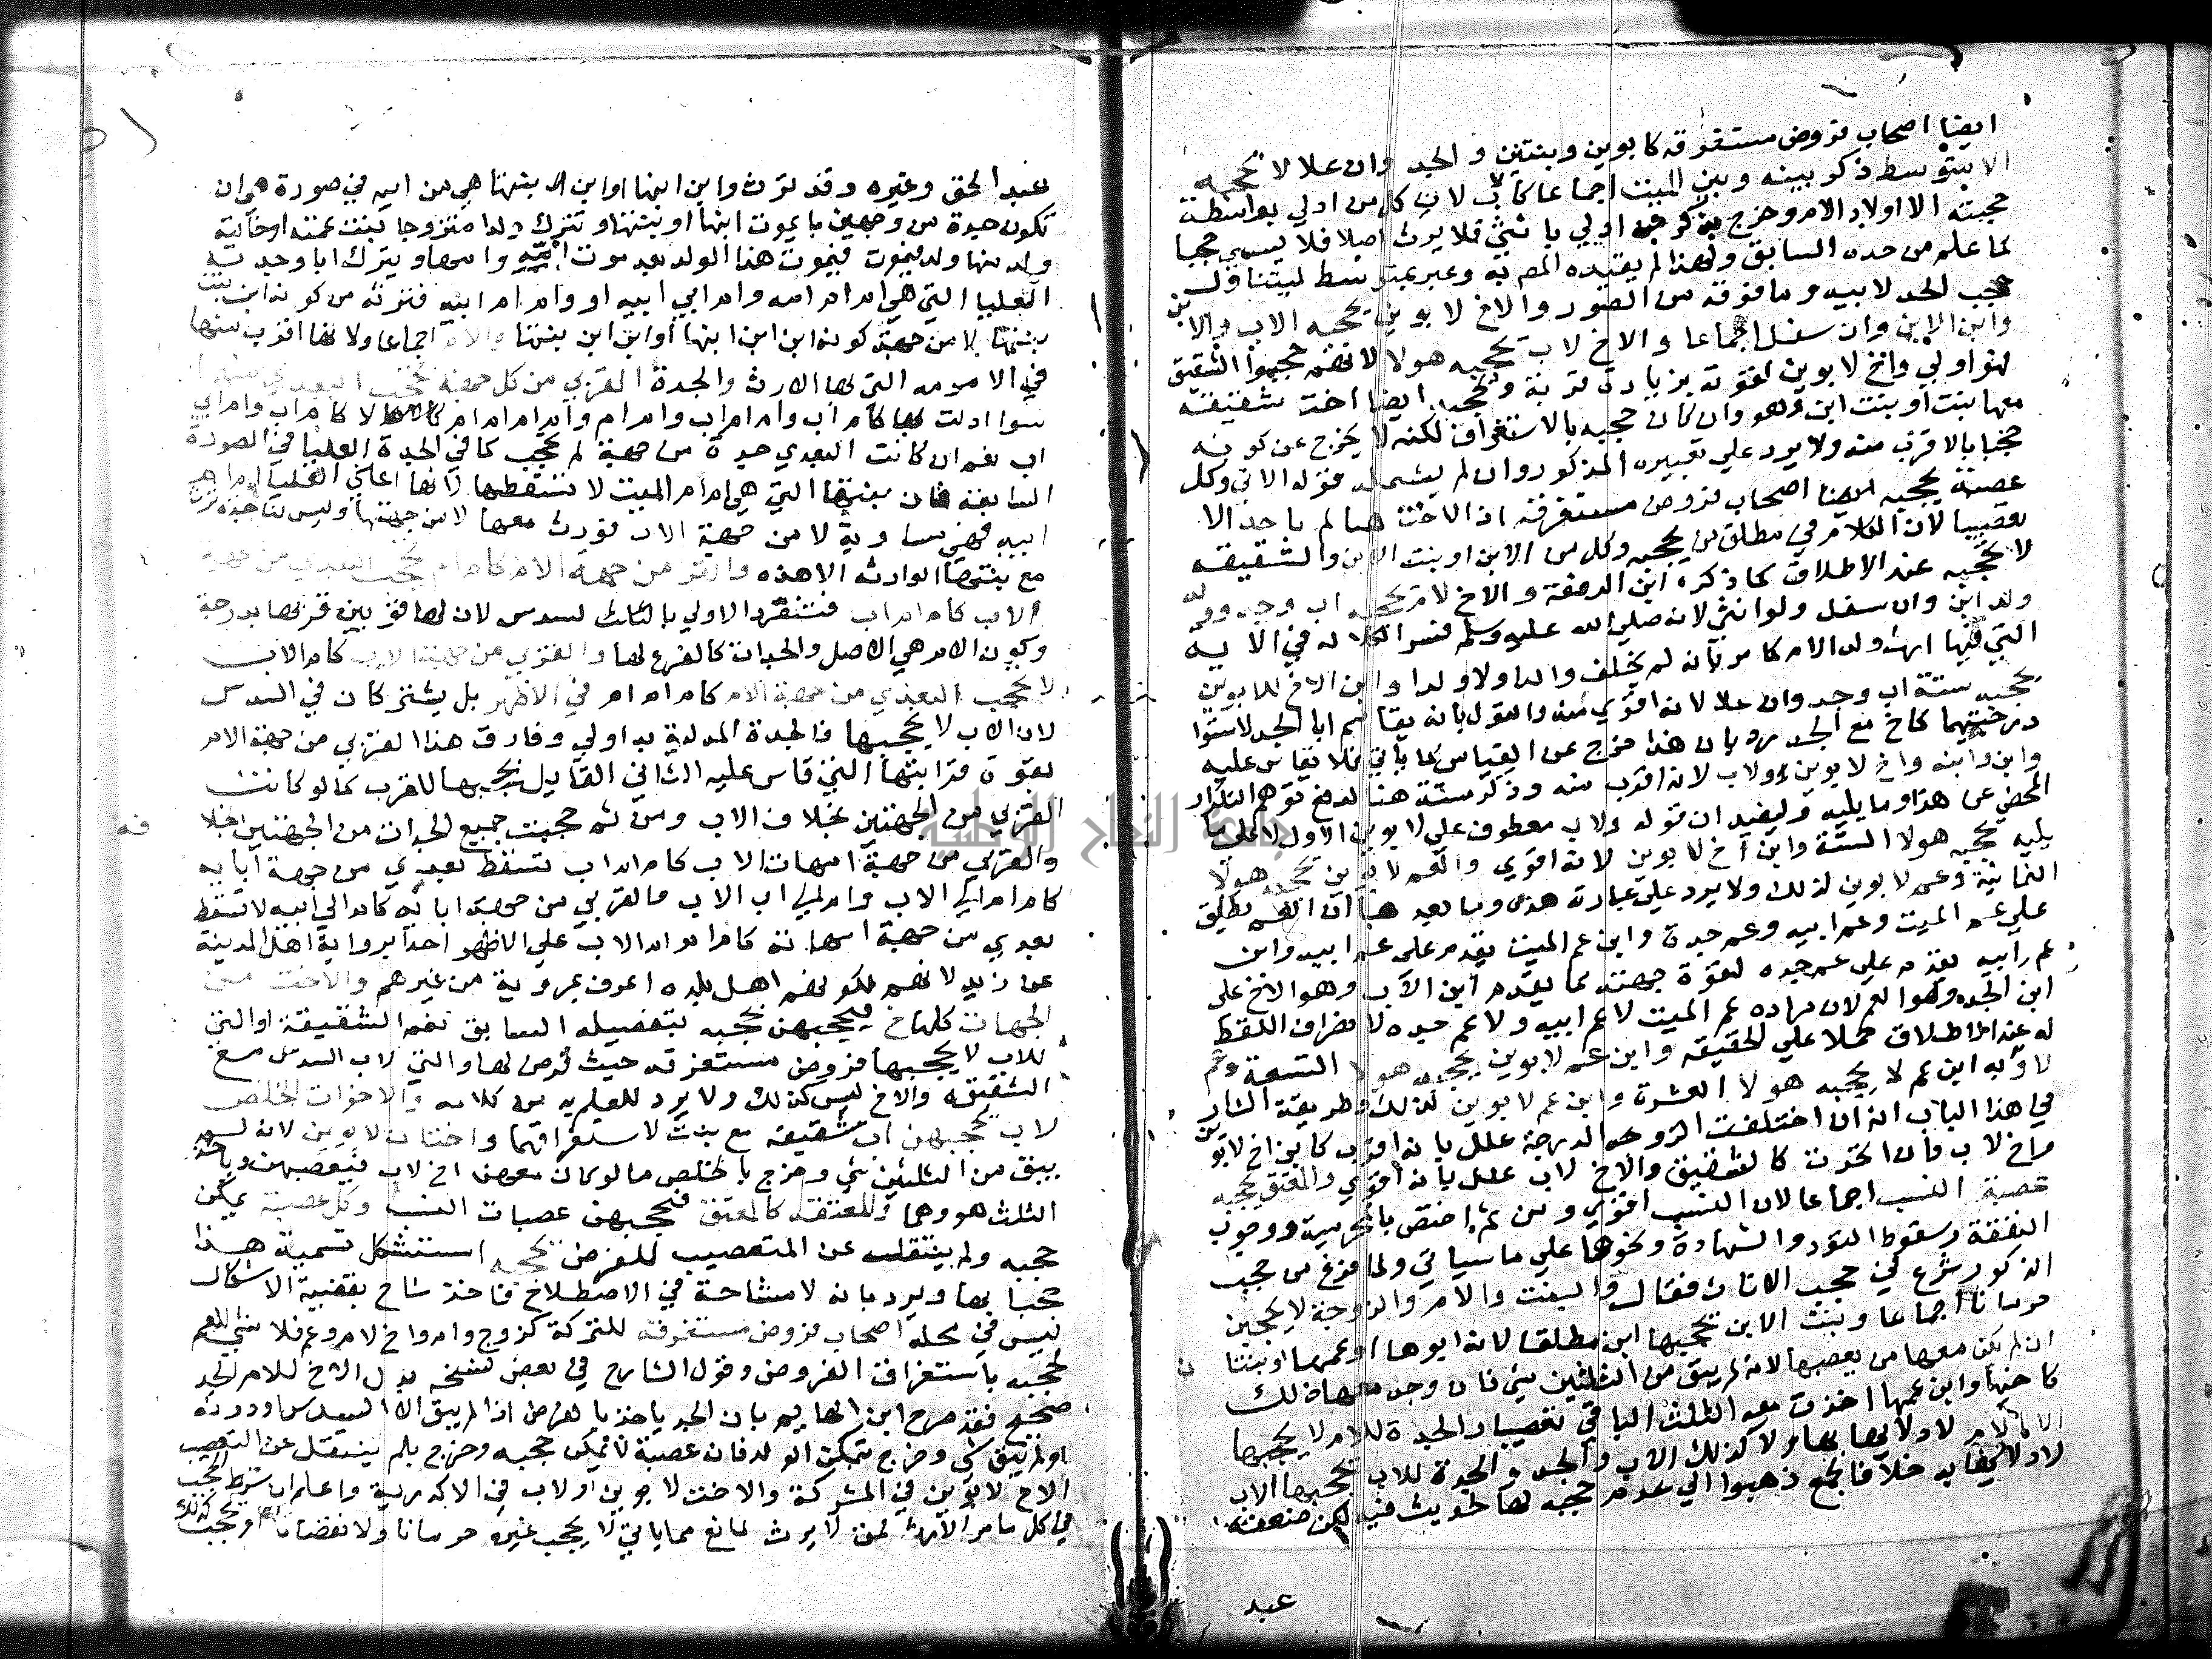 ايضا اصحاب فروض مستغرقة كابوين وبنتين و الجد وان علا لا يحجبه
الا بتوسط ذكر بينه وبين الميت اجماعا كاب لان كل من ادلي بواسطة
حجبته الا اولاد الام وخرج بذكر من ادلي بانثي فلا يرث اصلا فلا يسمي حجبا
كما علم من حده السابق ولهذا لم يقيده المص به وعبر بمتوسط ليتناول
حجب الجد لابيه وما فوقه من الصور والاخ لابوين يحجبه الاب والابن
وابن الابن وان سفل اجماعا والاخ لاب يحجبه هولا لانهم حجبوا الشقيق
فهو اولي واخ لابوين لقوته بزيادة قربه ويحجبه ايضا اخت شقيقة
معها بنت او بنت ابن وهو وان كان حجبه بالاستغراق لكنه لا يخرج عن كونه
حجبا بالاقرب منه ولا يرد علي تعبيره المذكور وان لم يشمله قوله الاتي وكل
عصبة يحجبه ايضا اصحاب فروض مستغرقة اذ الاخت هنا لم تاخذ الا
تعصيبا لان الكلام في مطلق من يحجبه وكل من الابن او بنت الابن والشقيقة
لا يحجبه عند الاطلاق كما ذكره ابن الرفعة والاخ لام يحجبه اب وجد وولد
ولد ابن وان سفل ولو انثي لانه صلي الله عليه وسلم فسر الكلالة في الاية
التي فيها ارث ولد الام كما مر بانه لم يخلف والدا ولا ولدا وابن الاخ للابوين
يحجبه ستة اب وجد وان علا لانه اقوي منه والقول بانه يقاسم ابا الجد لاستوا
درجتيهما كاخ مع الجد مردود بان هذا خرج عن القياس كما ياتي فلا يقاس عليه
وابن وابنه واخ لابوين ولاب لانه اقرب منه وذكر ستة هنا لدفع توهم التكرار
المحض عن هذا وما يليه وليفيد ان قوله ولاب معطوف علي لابوين الاول لا علي ما
يليه يحجبه هولا الستة وابن اخ لابوين لانه اقوي والعم لابوين يحجبه هولا
الثمانية وعم لابوين لذلك ولا يرد علي عبارته هذه وما بعدها ان العم يطلق
علي عم الميت وعم ابيه وعم جده وابن عم الميت يقدم علي عم ابيه وابن
عم ابيه يقدم علي عم جده لقوة جهته كما يقدم ابن الاب وهو الاخ علي
ابن الجد وهو العم لان مراده عم الميت لا عم ابيه ولا عم جده لانصراف اللفظ
له عند الاطلاق حملا علي الحقيقة وابن عم لابوين يحجبه هولا التسعة وعم
لاب وابن عم لاب يحجبه هولا العشرة وابن عم لابوين لذلك وطريقة الشارح
في هذا الباب انه ان اختلفت الدرجة علل بانه اقرب كابن اخ لابوين
واخ لاب فان اتحدت كالشقيق والاخ لاب علل بانه اقوي والمعتق يحجبه
عصبة النسب اجماعا لان النسب اقوي ومن ثم اختص بالمحرمية ووجوب
النفقة وسقوط القود والشهادة ونحوها علي ما سياتي ولما فرغ من حجب
الذكور شرع في حجب الاناث فقال والبنت والام والزوجة لا يحجبن
حرمانا اجماعا وبنت الابن يحجبها ابن مطلقا لانه ابوها او عمها او بنتا
ان لم يكن معها من يعصبها لانه لم يبق من الثلثين شي فان وجد معها ذلك
كاخيها وابن عمها اخذت معه الثلث الباقي تعصيبا والجدة للام لا يحجبها
الا الام لادلائها بها ولا كذلك الاب والجد والجدة للاب يحجبها الاب
لادلائها به خلافا لجمع ذهبوا الي عدم حجبه لها لحديث فيه لكن ضعفه
عبد
عبد الحق وغيره وقد ترث وابن ابنها او ابن بنتها هي من ابيه في صورة هي ان
تكون جدة من وجهين بان يموت ابنها او بنتها وتترك ولدا متزوجا ببنت عمته او خالته
وله منها ولد فيموت فيموت هذا الولد بعد موت ابيه وامها ويترك ابا وجدته
العليا التي هي ام ام امه وام ابي ابيه او وام ام ابيه فترثه من كونه ابن بنت
بنتها لا من جهة كونه ابن ابن ابنها او ابن ابن بنتها والام اجماعا ولانها اقرب منها
في الامومة التي لها الارث والجدة القربي من كل جهة تحجب البعدي منها
سوا ادلت بها كام اب وام ام اب وام ام وام ام ام ام لا كام اب وام ابي
اب نعم ان كانت البعدي جدة من جهة لم تحجب كما في الجدة العليا في الصورة
السابقة فان بنتها التي هي ام ام الميت لا تسقطها لانها اعني العليا ام ام
ابيه فهي مساوية لا من جهة الاب فورث معها لا من جهتها وليس لنا جدة ترث
مع بنتها الوارثة الا هذه والقربي من جهة الام كام ام تحجب البعدي من جهة
الاب كام ام اب فتنفرد الاولي بالسدس لان لها قوتين قربها بدرجة
وكون الام هي الاصل والجدات كالفرع لها والقربي من جهة الاب كام الاب
لا تحجب البعدي من جهة الام كام ام ام في الاظهر بل يشتركان في السدس
لان الاب لا يحجبها فالجدة المدلية به اولي وفارق هذا القربي من جهة الام
بقوة قرابتها التي قاس عليه الثاني القايل بحجبها للقرب كما لو كانت
القربي من الجهتين بخلاف الاب ومن ثم حجبت جميع الجدات من الجهتين بخلا
فه
والقربي من جهة امهات الاب كام ام اب تسقط بعدي من جهة ابايه
كام ام ابي الاب وام ابي اب الاب والقربي من جهة ابايه كام ابي ابيه لا تسقط
بعدي من جهة امهاته كام ام ام الاب علي الاظهر اخذا برواية اهل المدينة
عن زيد لانهم لكونهم اهل بلده اعرف بمروية من غيرهم والاخت من
الجهات كلها كاخ فيحجبهن من يحجبه بتفصيله السابق نعم الشقيقة او التي
للاب لا يحجبها فروض مستغرقة حيث فرض لها والتي لاب السدس مع
الشقيقة والاخ ليس كذلك ولا يرد للعلم به من كلامه والاخوات الخلص
لاب يحجبهن ايضا شقيقة مع بنت لاستغراقهما واختان لابوين لانه لم
يبق من الثلثين شي وخرج بالخلص ما لو كان معهن اخ لاب فيعصبهن وياخذ
الثلث هو وهما والمعتقة كالمعتق فيحجبهن عصبات النسب وكل عصبة يمكن
حجبه ولم ينتقل عن التعصيب للفرض يحجبه استشكل تسمية هذا
حجبا بها ويرد بانه لا مشاحة في الاصطلاح فاخذ شاح بقضية الاشكال
ليس في محله اصحاب فروض مستغرقة للتركة كزوج وام واخ لام وعم فلا شي للعم
لحجبه باستغراق الفروض وقول الشارح في بعض نسخه بدل الاخ للام الجد
صحيح فقد صرح ابن الهايم بان الجد ياخذ بالفرض اذا لم يبق الا السدس او دونه
او لم يبق شي وخرج بتمكن الولد فان عصبة لا يمكن حجبه وخرج بلم ينتقل عن التعصيب
الاخ لابوين في المشركة والاخت لابوين او لاب في الاكدرية واعلم ان شرط الحجب
في كل ما مر الارث فمن لا يرث لمانع مما ياتي لا يحجب غيره حرمانا ولا نقصانا او يحجب كذلك